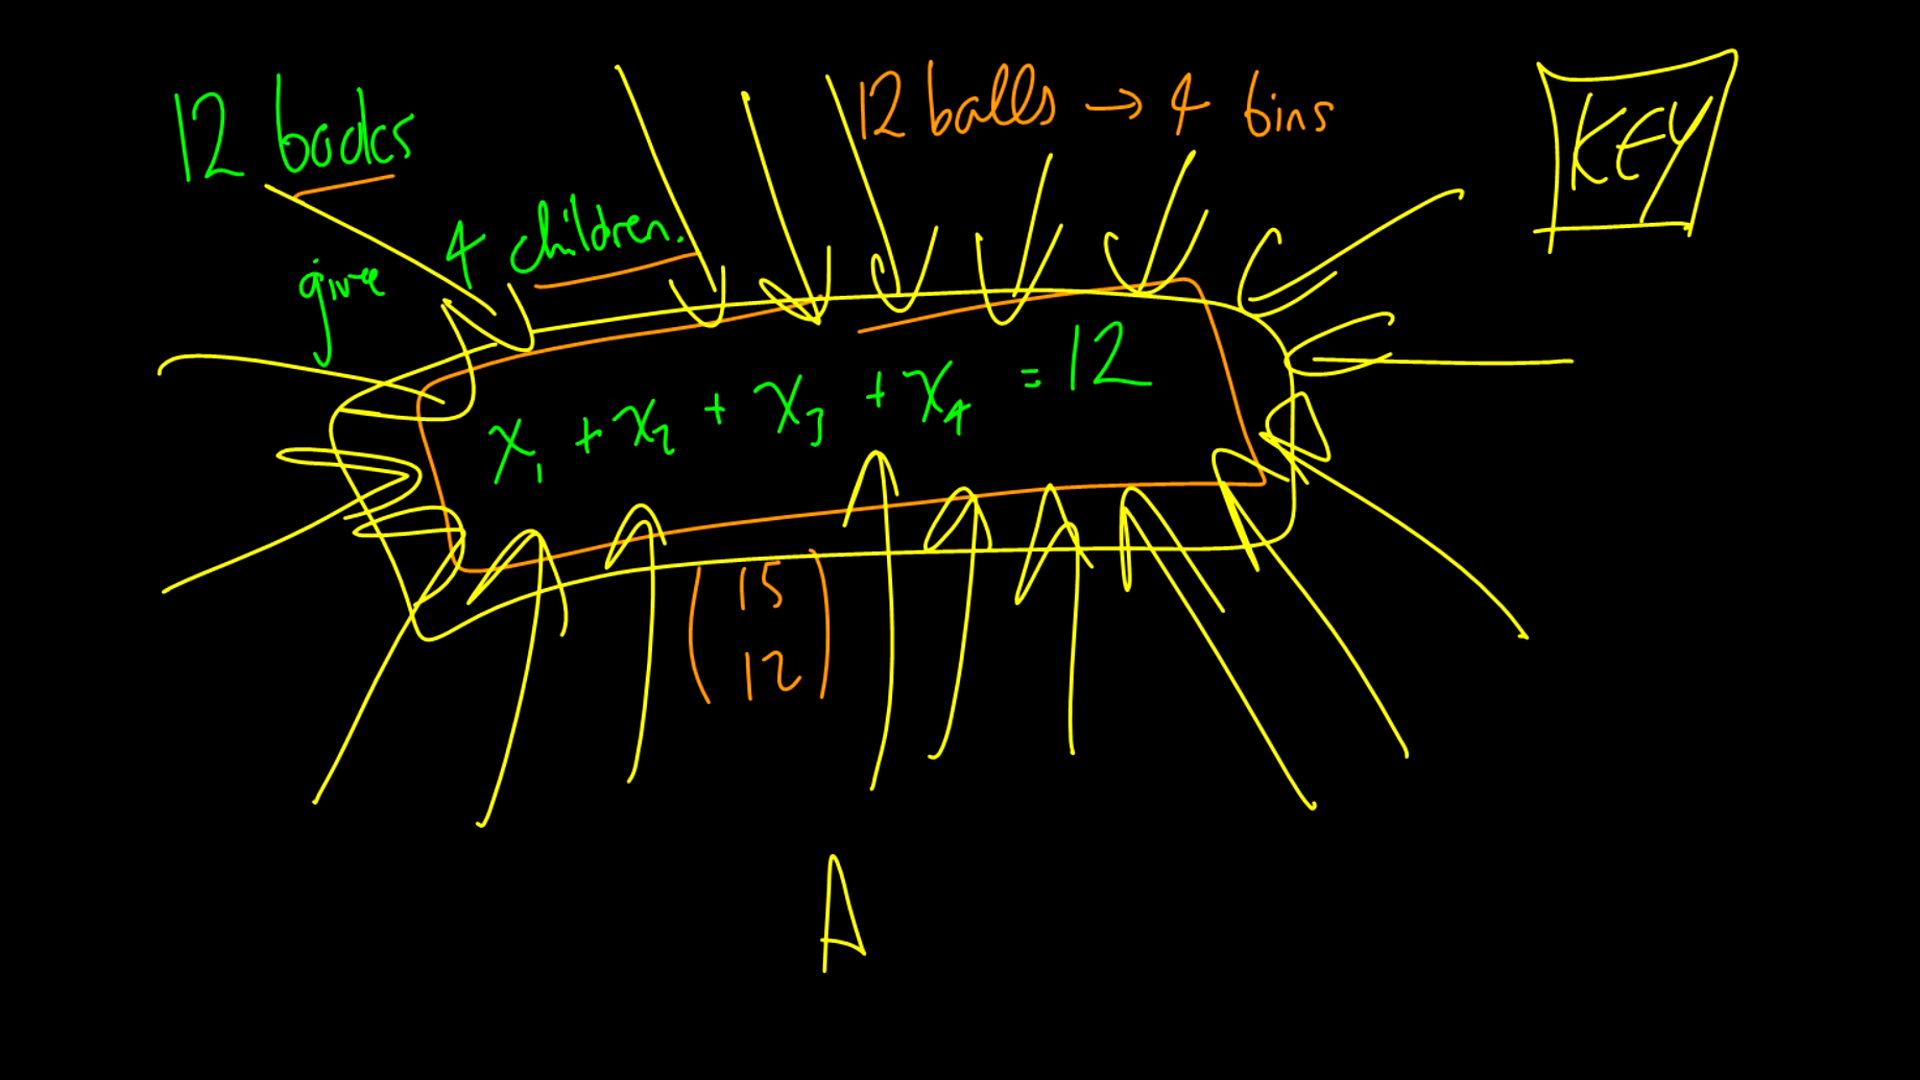 12 books
give 4 children.
12 balls → 4 bins
KEY
x₁ + x₂ + x₃ + x₄ = 12
(15
12)
A